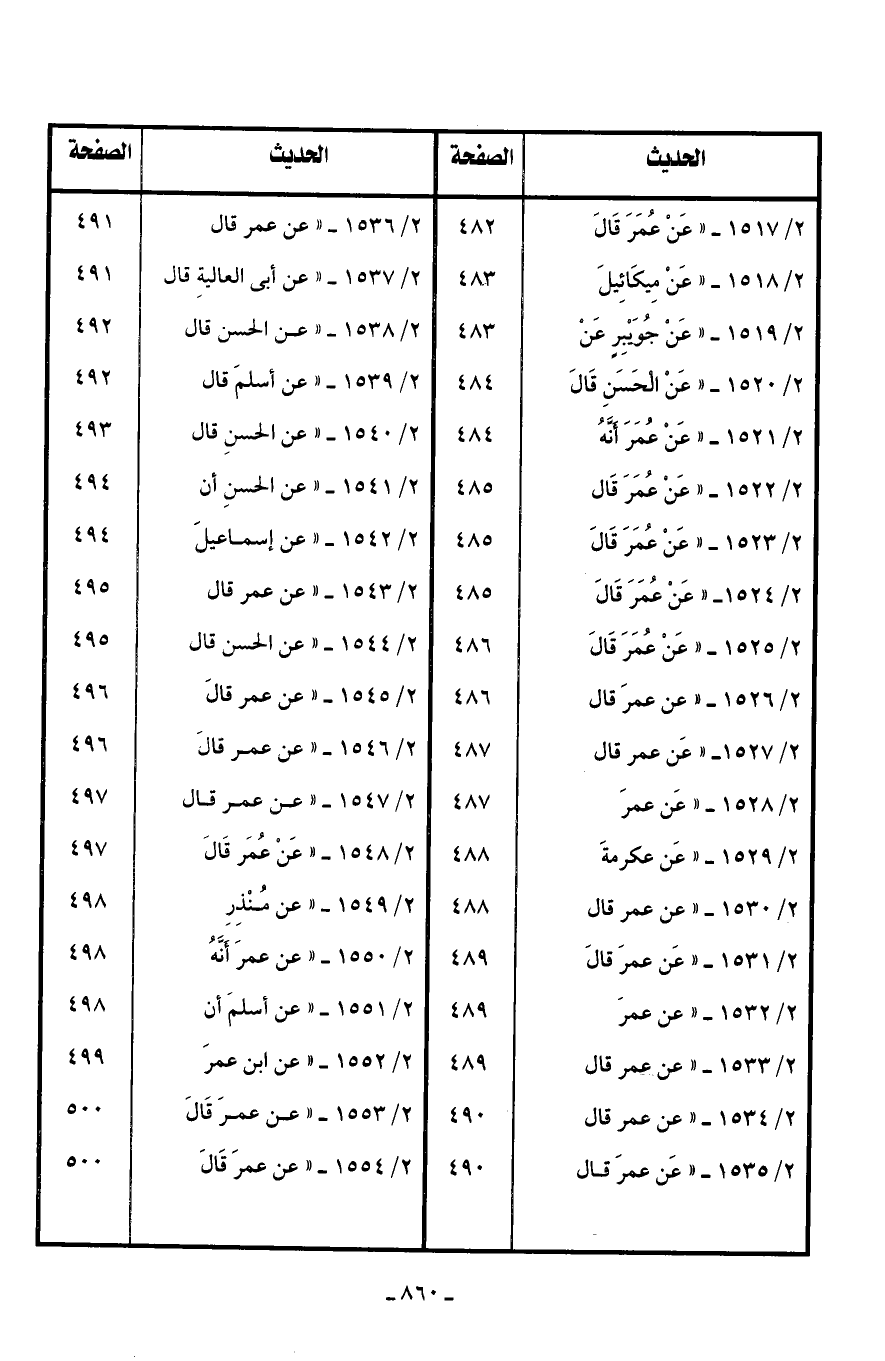 الحديث الصفحة الحديث الصفحة
٢/ ١٥١٧ ـ « عَنْ عُمَرَ قَالَ ٤٨٢ ٢/ ١٥٣٦ ـ « عن عمر قال ٤٩١
٢/ ١٥١٨ ـ « عَنْ مِيكَائِيلَ ٤٨٣ ٢/ ١٥٣٧ ـ « عن أبى العاليةِ قال ٤٩١
٢/ ١٥١٩ ـ « عَنْ جُوَيْبِرٍ عَنْ ٤٨٣ ٢/ ١٥٣٨ ـ « عـن الحسن قال ٤٩٢
٢/ ١٥٢٠ ـ « عَنْ الْحَسَنِ قَالَ ٤٨٤ ٢/ ١٥٣٩ ـ « عن أسلمَ قال ٤٩٢
٢/ ١٥٢١ ـ « عَنْ عُمَرَ أَنَّهُ ٤٨٤ ٢/ ١٥٤٠ ـ « عن الحسنِ قال ٤٩٣
٢/ ١٥٢٢ ـ « عَنْ عُمَرَ قَال ٤٨٥ ٢/ ١٥٤١ ـ « عن الحسنِ أن ٤٩٤
٢/ ١٥٢٣ ـ « عَنْ عُمَرَ قَالَ ٤٨٥ ٢/ ١٥٤٢ ـ « عن إسمـاعيلَ ٤٩٤
٢/ ١٥٢٤ـ « عَنْ عُمَرَ قَالَ ٤٨٥ ٢/ ١٥٤٣ ـ « عن عمر قال ٤٩٥
٢/ ١٥٢٥ ـ « عَنْ عُمَرَ قَالَ ٤٨٦ ٢/ ١٥٤٤ ـ « عن الحسن قال ٤٩٥
٢/ ١٥٢٦ ـ « عن عمرَ قال ٤٨٦ ٢/ ١٥٤٥ ـ « عن عمر قالَ ٤٩٦
٢/ ١٥٢٧ـ « عَن عمر قال ٤٨٧ ٢/ ١٥٤٦ ـ « عن عمـر قالَ ٤٩٦
٢/ ١٥٢٨ ـ « عَن عمرَ ٤٨٧ ٢/ ١٥٤٧ ـ « عـن عمـر قـال ٤٩٧
٢/ ١٥٢٩ ـ « عَن عكرمةَ ٤٨٨ ٢/ ١٥٤٨ ـ « عَنْ عُمَر قَالَ ٤٩٧
٢/ ١٥٣٠ ـ « عن عمر قال ٤٨٨ ٢/ ١٥٤٩ ـ « عن مُـنْذِرٍ ٤٩٨
٢/ ١٥٣١ ـ « عَن عمرَ قالَ ٤٨٩ ٢/ ١٥٥٠ ـ « عن عمرَ أَنَّهُ ٤٩٨
٢/ ١٥٣٢ ـ « عن عمرَ ٤٨٩ ٢/ ١٥٥١ ـ « عن أسلمَ أن ٤٩٨
٢/ ١٥٣٣ ـ « عن عمر قال ٤٨٩ ٢/ ١٥٥٢ ـ « عن ابن عمرَ ٤٩٩
٢/ ١٥٣٤ ـ « عن عمر قال ٤٩٠ ٢/ ١٥٥٣ ـ « عـن عمـرَ قَالَ ٥٠٠
٢/ ١٥٣٥ ـ « عَن عمرَ قـال ٤٩٠ ٢/ ١٥٥٤ ـ « عن عمرَ قَالَ ٥٠٠
ـ ٨٦٠ ـ